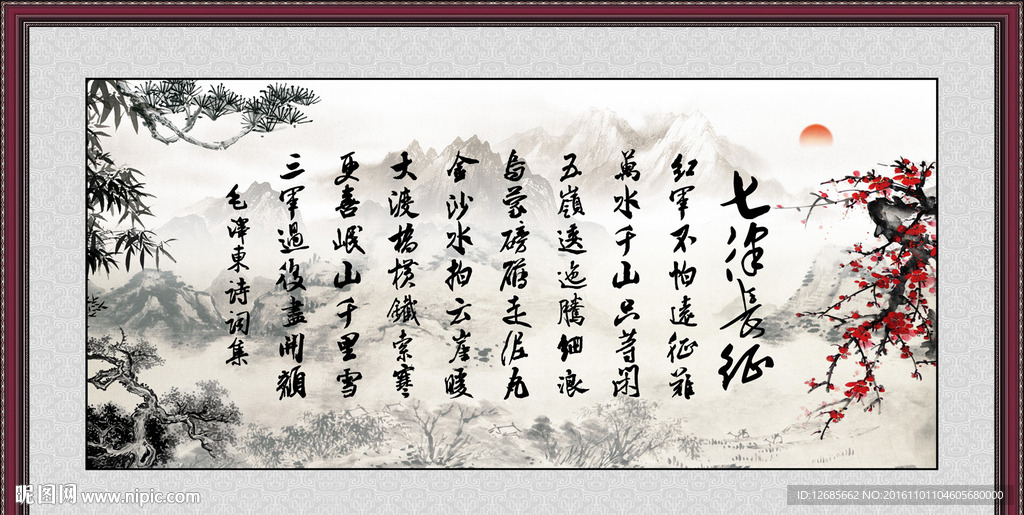 七律长征
红军不怕远征难
萬水千山只等閑
五嶺逶迤騰細浪
烏蒙磅礴走泥丸
金沙水拍云崖暖
大渡橋橫鐵索寒
更喜岷山千里雪
三军過後盡開顏
毛澤東诗词集
昵图网 www.nipic.com
ID:12685662 NO:20161101104605680000